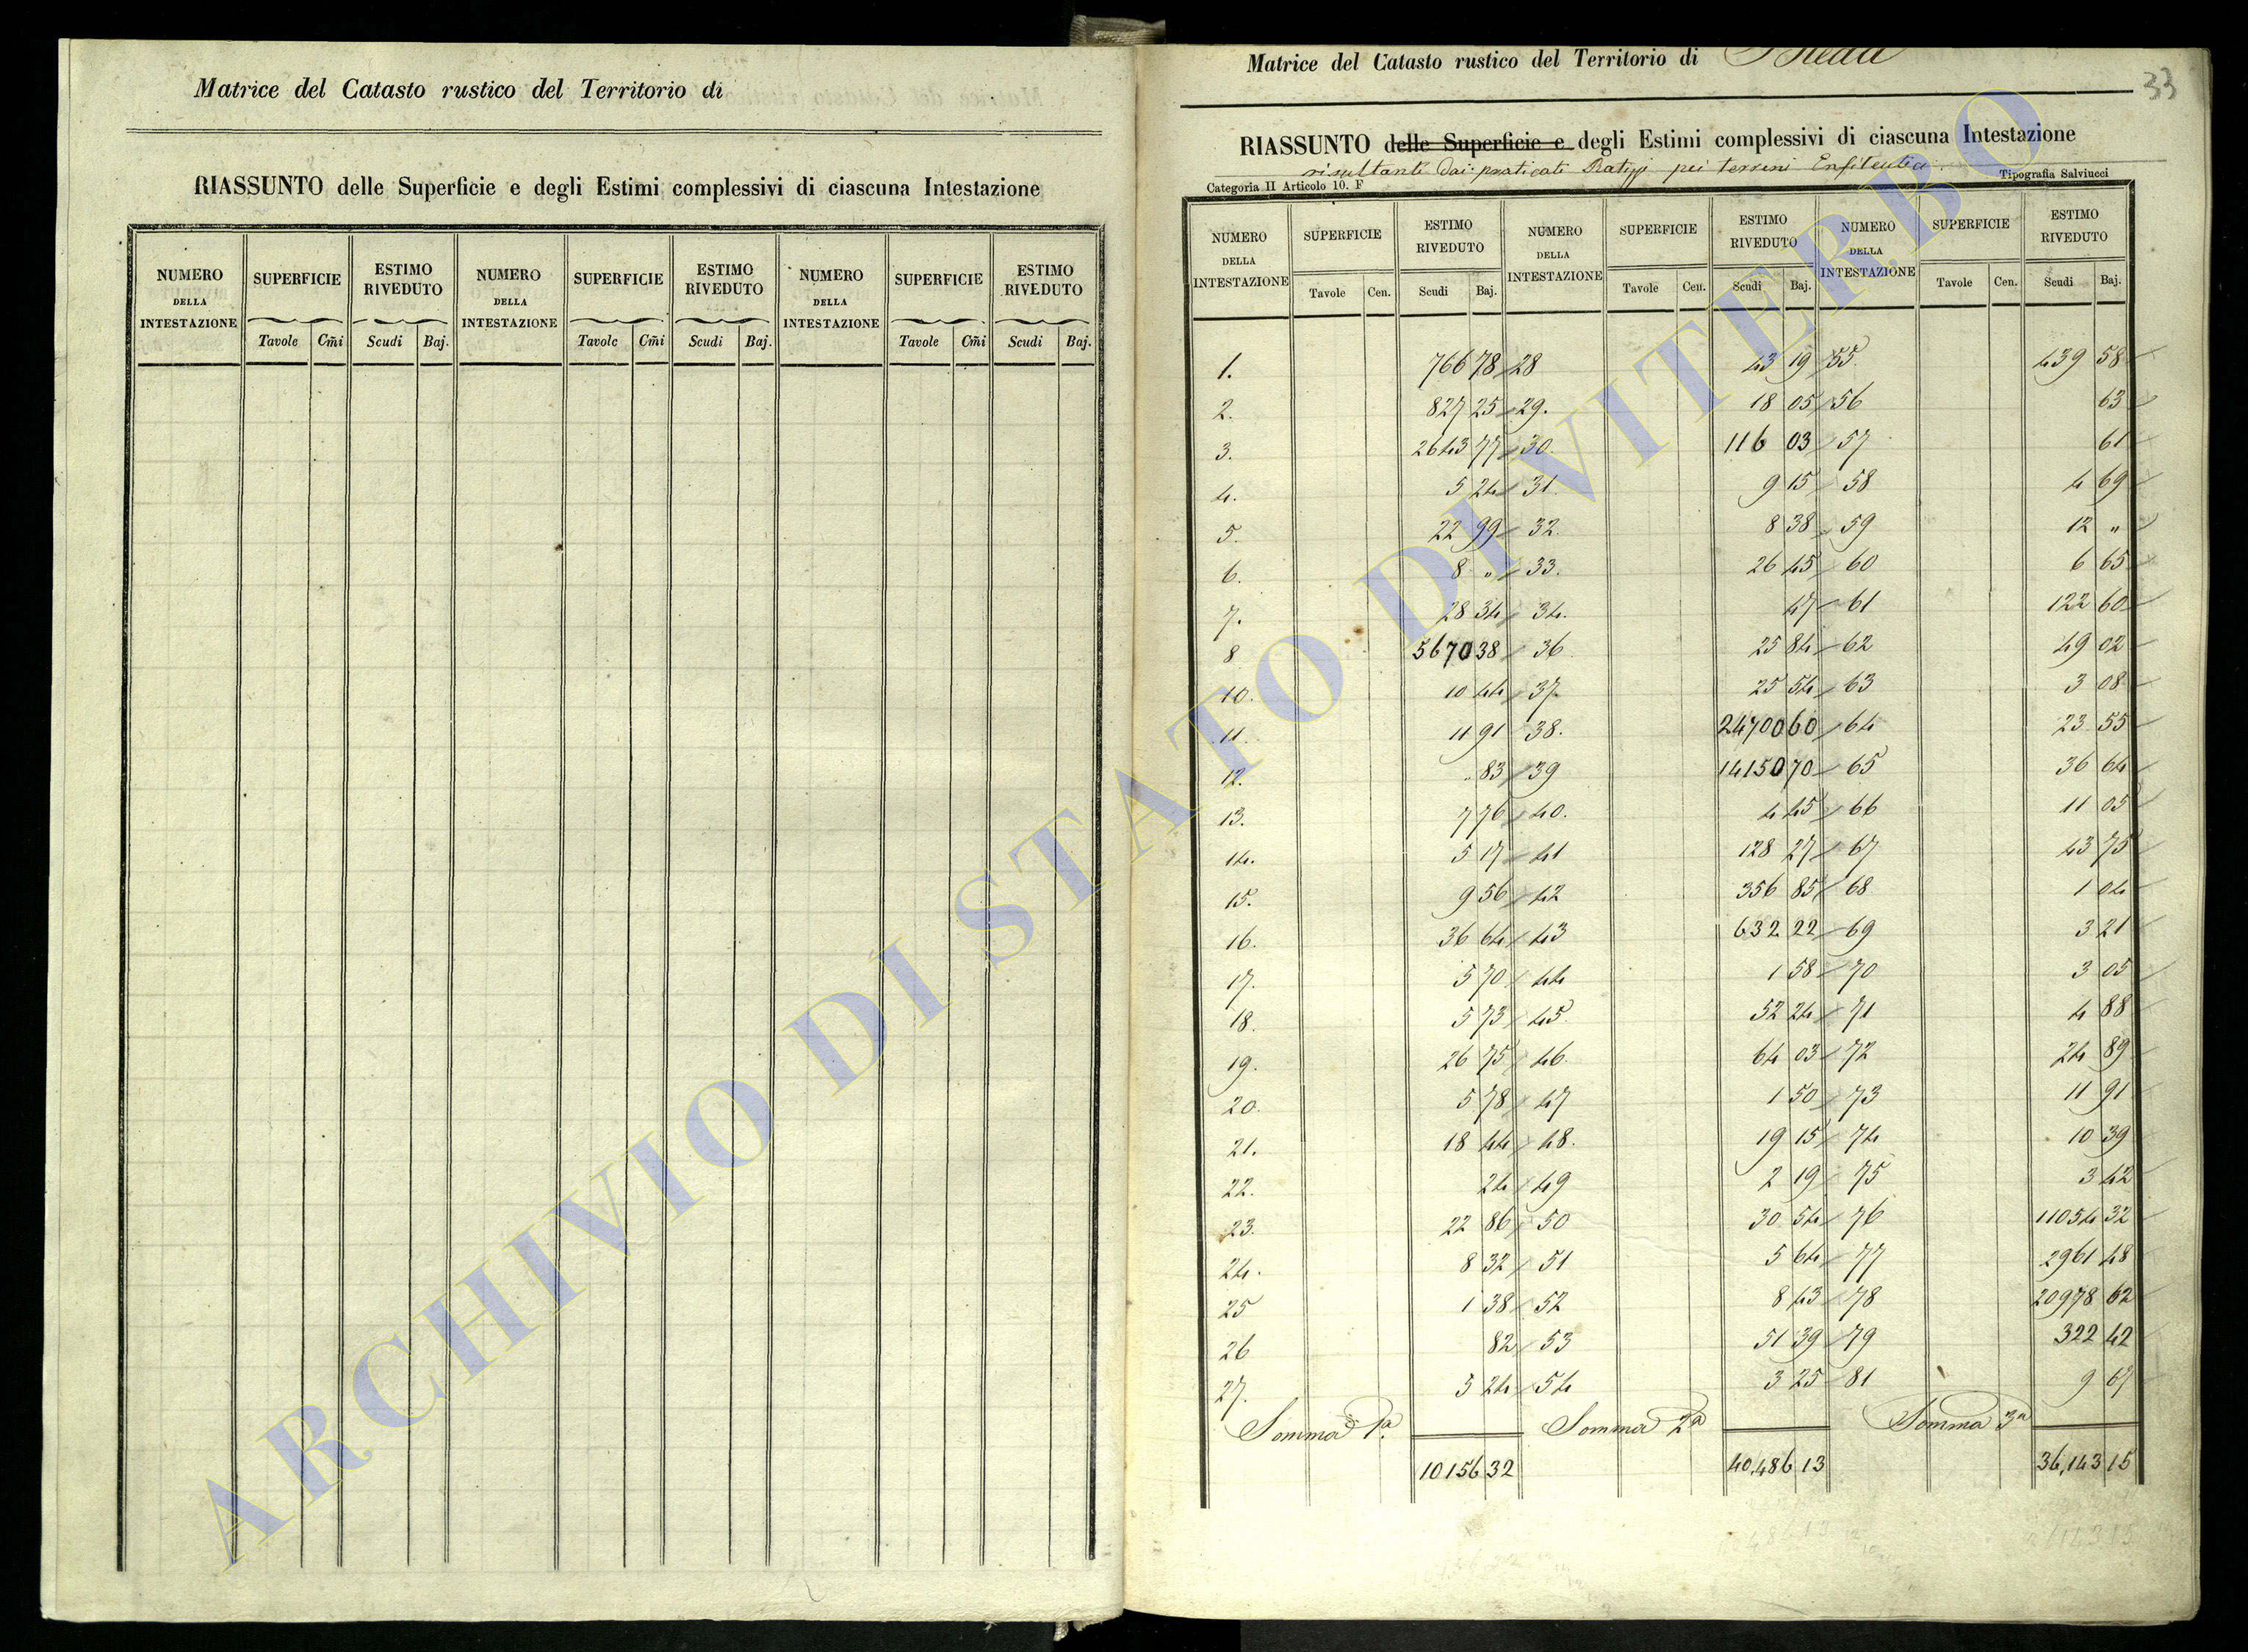 Matrice del Catasto rustico del Territorio di
RIASSUNTO delle Superficie e degli Estimi complessivi di ciascuna Intestazione
NUMERO DELLA INTESTAZIONE SUPERFICIE ESTIMO RIVEDUTO NUMERO DELLA INTESTAZIONE SUPERFICIE ESTIMO RIVEDUTO NUMERO DELLA INTESTAZIONE SUPERFICIE ESTIMO RIVEDUTO
Tavole Cm̃i Scudi Baj. Tavole Cm̃i Scudi Baj. Tavole Cm̃i Scudi Baj.
Matrice del Catasto rustico del Territorio di Bieda
33
RIASSUNTO delle Superficie e degli Estimi complessivi di ciascuna Intestazione
risultanti dai praticati Ratizzi pei terreni Enfiteutici
Categoria II Articolo 10. F Tipografia Salviucci
NUMERO DELLA INTESTAZIONE SUPERFICIE ESTIMO RIVEDUTO NUMERO DELLA INTESTAZIONE SUPERFICIE ESTIMO RIVEDUTO NUMERO DELLA INTESTAZIONE SUPERFICIE ESTIMO RIVEDUTO
Tavole Cen. Scudi Baj. Tavole Cen. Scudi Baj. Tavole Cen. Scudi Baj.
1. 766 78 28 43 19 55. 439 58
2. 827 25 29. 18 05 56 63
3. 2643 77 30. 116 03 57 61
4. 5 24 31. 9 15 58 4 69
5. 22 99 32. 8 38 59 12 "
6. 8 " 33. 26 45 60 6 65
7. 28 34 34. 47 61 122 60
8 5670 38 36 25 84 62 49 02
10. 10 44 37. 25 54 63 3 08
11. 11 91 38. 24700 60 64 23 55
12. 83 39 14150 70 65 36 64
13. 7 76 40. 4 45 66 11 05
14. 5 17 41 128 27 67 43 75
15. 9 56 42 356 85 68 1 04
16. 36 64 43 632 22 69 3 21
17. 5 70 44 1 58 70 3 05
18. 5 73 45. 52 24 71 4 88
19. 26 75 46. 64 03 72 24 89
20. 5 78 47 1 50 73 11 91
21. 18 44 48. 19 15 74 10 39
22. 24 49 2 19 75 3 42
23. 22 86 50 30 54 76 11054 32
24. 8 32 51 5 64 77 2961 48
25 1 38 52 8 43 78 20978 62
26 82 53 51 39 79 322 42
27. 5 24 54 3 25 81 9 67
Somma 1a. Somma 2a Somma 3a
10156 32 40,486 13 36,143 15
ARCHIVIO DI STATO DI VITERBO